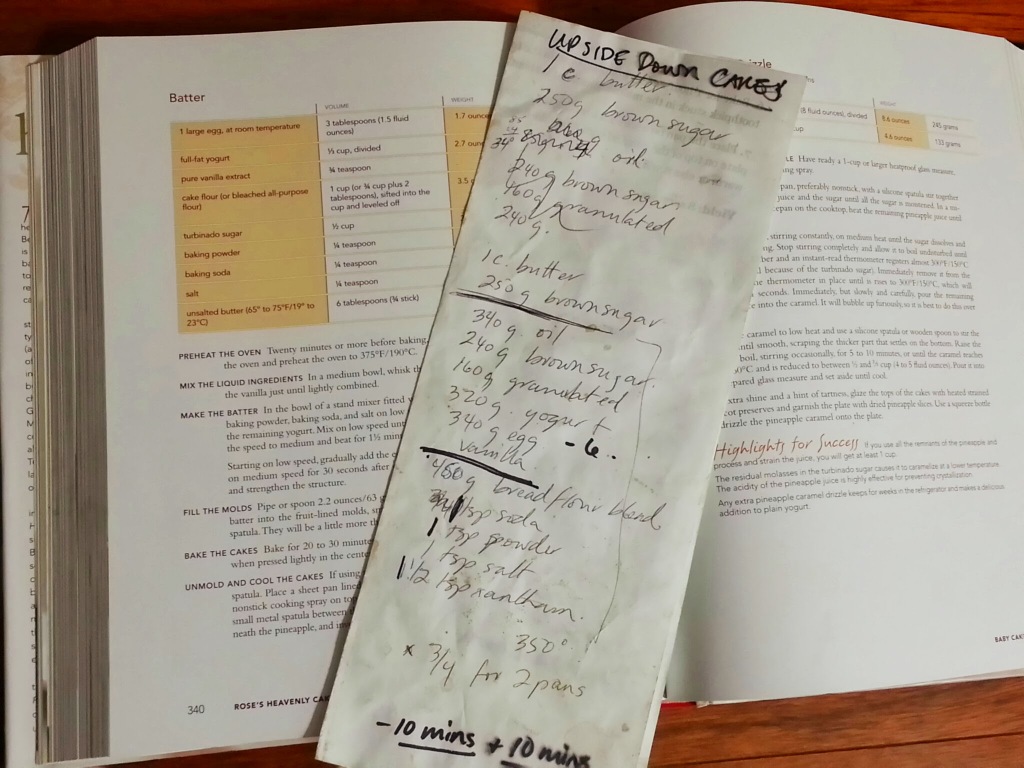 Batter
VOLUME WEIGHT
1 large egg, at room temperature 3 tablespoons (1.5 fluid ounces) 1.7 ounce
full-fat yogurt ⅓ cup, divided 2.7 oun
pure vanilla extract ¾ teaspoon
cake flour (or bleached all-purpose flour) 1 cup (or ¾ cup plus 2 tablespoons), sifted into the cup and leveled off 3.5
turbinado sugar ½ cup
baking powder ¼ teaspoon
baking soda ¼ teaspoon
salt ¼ teaspoon
unsalted butter (65° to 75°F/19° to 23°C) 6 tablespoons (¾ stick)
PREHEAT THE OVEN Twenty minutes or more before baking,
the oven and preheat the oven to 375°F/190°C.
MIX THE LIQUID INGREDIENTS In a medium bowl, whisk th
the vanilla just until lightly combined.
MAKE THE BATTER In the bowl of a stand mixer fitted
baking powder, baking soda, and salt on low
the remaining yogurt. Mix on low speed unt
the speed to medium and beat for 1½ min
Starting on low speed, gradually add the e
on medium speed for 30 seconds after
and strengthen the structure.
FILL THE MOLDS Pipe or spoon 2.2 ounces/63 g
batter into the fruit-lined molds, sm
spatula. They will be a little more th
BAKE THE CAKES Bake for 20 to 30 minute
when pressed lightly in the cente
UNMOLD AND COOL THE CAKES If using
spatula. Place a sheet pan line
nonstick cooking spray on top
small metal spatula between
neath the pineapple, and in
340 ROSE'S HEAVENLY CA
UPSIDE DOWN CAKES
1 c butter
250g brown sugar
oil
240g brown sugar
160g granulated
240g.
1 c. butter
250g brown sugar
340g. oil
240g brown sugar.
160g granulated
320g. yogurt
340g egg -6.
vanilla
460g bread flour blend
1 tsp soda
1 tsp powder
1 tsp salt
1 1/2 tsp xantham
350°
x 3/4 for 2 pans
-10 mins + 10 mins
zzle
HEIGHT
(8 fluid ounces), divided 8.6 ounces 245 grams
cup 4.6 ounces 133 grams
Have ready a 1-cup or larger heatproof glass measure,
ng spray.
pan, preferably nonstick, with a silicone spatula stir together
juice and the sugar until all the sugar is moistened. In a
epan on the cooktop, heat the remaining pineapple juice until
stirring constantly, on medium heat until the sugar dissolves and
g. Stop stirring completely and allow it to boil undisturbed until
ber and an instant-read thermometer registers almost 300°F/150°C
because of the turbinado sugar). Immediately remove it from the
he thermometer in place until it rises to 300°F/150°C, which will
seconds. Immediately, but slowly and carefully, pour the remaining
e into the caramel. It will bubble up furiously, so it is best to do this over
caramel to low heat and use a silicone spatula or wooden spoon to stir the
ntil smooth, scraping the thicker part that settles on the bottom. Raise the
boil, stirring occasionally, for 5 to 10 minutes, or until the caramel reaches
0°C and is reduced to between ½ and ⅝ cup (4 to 5 fluid ounces). Pour it into
pared glass measure and set aside until cool.
xtra shine and a hint of tartness, glaze the tops of the cakes with heated strained
cot preserves and garnish the plate with dried pineapple slices. Use a squeeze bottle
drizzle the pineapple caramel onto the plate.
Highlights for Success If you use all the remnants of the pineapple and
process and strain the juice, you will get at least 1 cup.
The residual molasses in the turbinado sugar causes it to caramelize at a lower temperature.
The acidity of the pineapple juice is highly effective for preventing crystallization.
Any extra pineapple caramel drizzle keeps for weeks in the refrigerator and makes a delicious
addition to plain yogurt.
BABY CAK